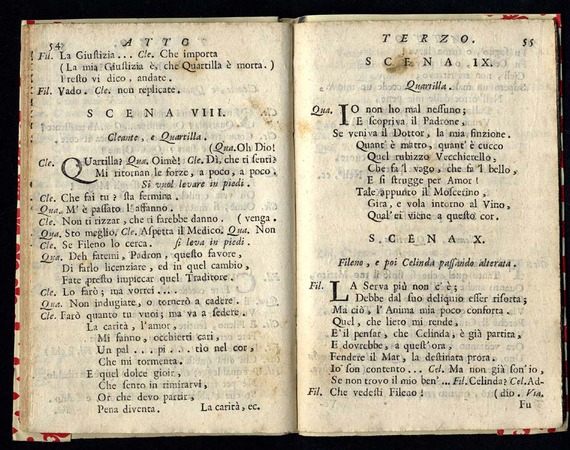 54 ATTO
Fil. La Giuſtizia... Cle. Che importa
( La mia Giuſtizia è, che Quartilla è morta. )
Preſto vi dico, andate.
Fil. Vado. Cle. non replicate.
SCENA VIII.
Cleante, e Quartilla.
(Qua. Oh Dio!
Cle. QUartilla? Qua. Oimè! Cle. Dì, che ti ſenti?
Mi ritornan le forze, a poco, a poco.
Si vuol levare in piedi.
Cle. Che fai tu? ſta fermina.
Qua. M' è paſſato l'affanno.
Cle. Non ti rizzar, che ti farebbe danno. ( venga.
Qua. Sto meglio. Cle. Aſpetta il Medico. Qua. Non
Cle. Se Fileno lo cerca. ſi leva in piedi.
Qua. Deh fatemi, Padron, queſto favore,
Di farlo licenziare, ed in quel cambio,
Fate preſto impiccar quel Traditore.
Cle. Lo farò; ma vorrei...
Qua. Non indugiate, o tornerò a cadere.
Cle. Farò quanto tu vuoi; ma va a ſedere.
La carità, l'amor,
Mi fanno, occhietti cari,
Un pal... pi... tìo nel cor,
Che mi tormenta.
E quel dolce gioir,
Che ſento in rimirarvi,
Or che devo partir,
Pena diventa. La carità, ec.
TERZO. 55
SCENA IX.
Quartilla.
Qua. IO non ho mal neſſuno;
E ſcopriva il Padrone,
Se veniva il Dottor, la mia finzione.
Quant' è matto, quant' è cucco
Quel rubizzo Vecchietello,
Che fa 'l vago, che fa 'l bello,
E ſi ſtrugge per Amor!
Tale appunto il Moſcerino,
Gira, e vola intorno al Vino,
Qual' ei viene a queſto cor.
SCENA X.
Fileno, e poi Celinda paſſando alterata.
Fil. LA Serva più non c'è;
Debbe dal ſuo deliquio eſſer riſorta;
Ma ciò, l'Anima mia poco conforta.
Quel, che lieto mi rende,
E' il penſar, che Celinda, è già partita,
E dovrebbe, a queſt' ora,
Fendere il Mar, la deſtinata prora.
Io ſon contento... Cel. Ma non già ſon' io,
Se non trovo il mio ben'... Fil. Celinda? Cel. Ad-
Fil. Che vedeſti Fileno! ( dio. Via.
Fu